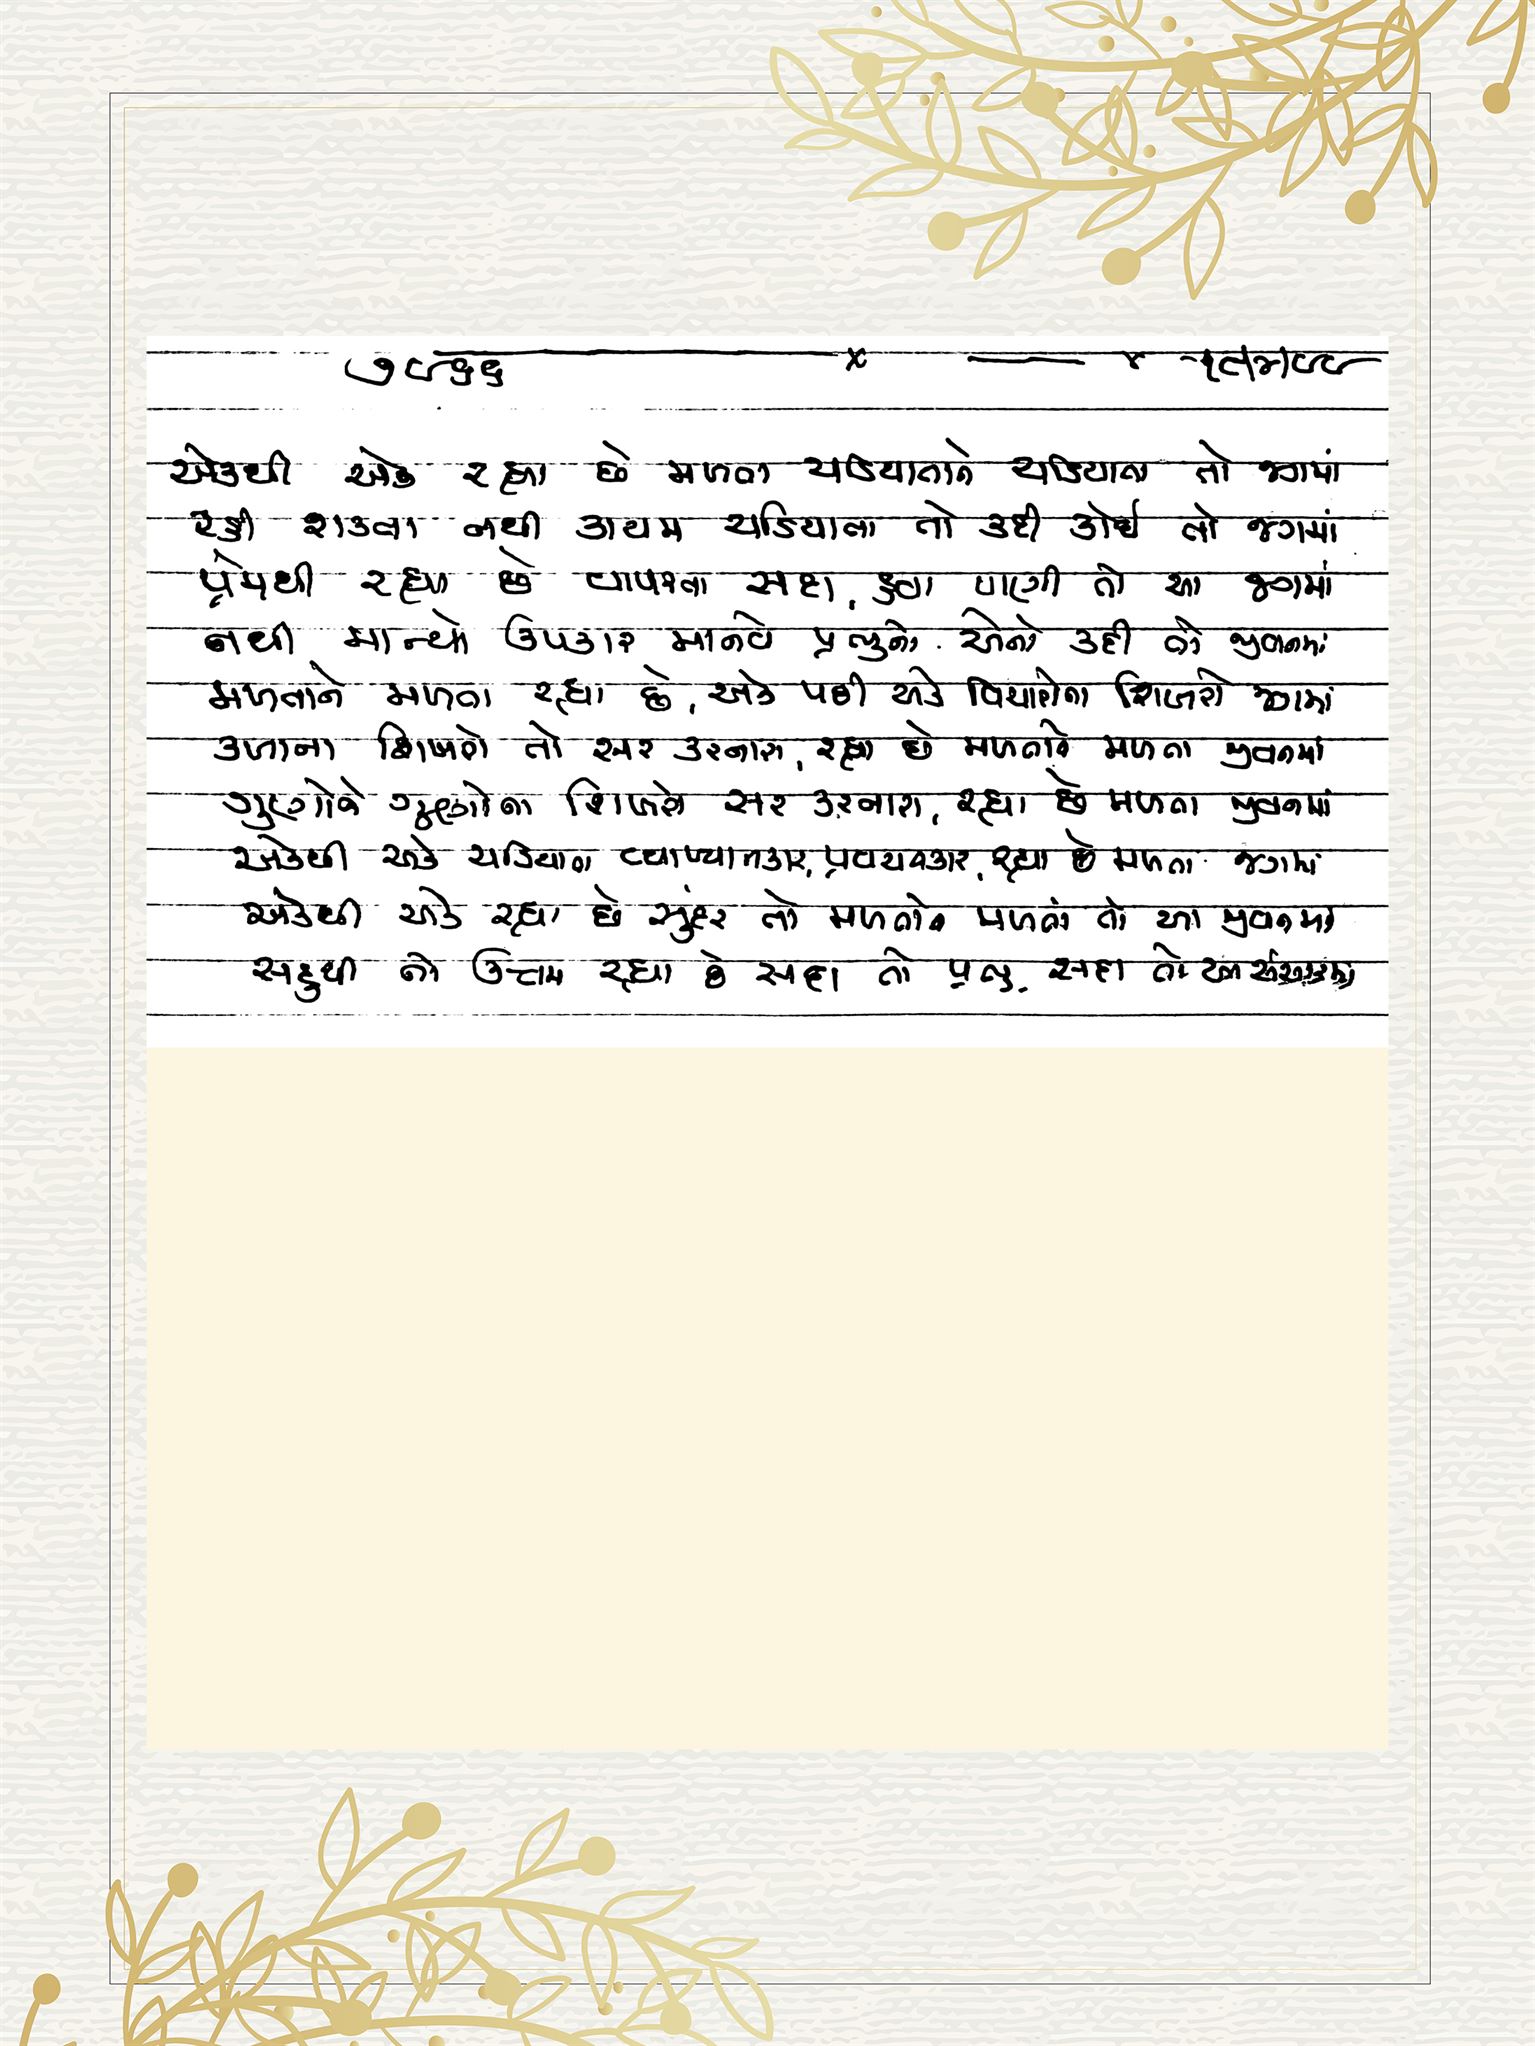 એકથી એક રહ્યા છે મળતા ચડિયાતાને ચડિયાતા તો જગમાં
રહી શક્તા નથી કાયમ ચડિયાતા તો કદી કોઈ તો જગમાં
પ્રેમથી રહ્યા છે વાપરતા સદા, હવા પાણી તો આ જગમાં
નથી માન્યો ઉપકાર માનવે પ્રભુનો એનો કદી તો જીવનમાં
મળતાને મળતા રહ્યા છે, એક પછી એક વિચારોના શિખરો જગમાં
કળાના શિખરો તો સર કરનારા, રહ્યા છે મળતાને મળતા જીવનમાં
ગુણોને ગુણોના શિખરો સર કરનારા, રહ્યા છે મળતા જીવનમાં
એકથી એક ચડિયાતા વ્યાખ્યાનકાર, પ્રવચનકાર, રહ્યા છે મળતા જગમાં
એકથી એક રહ્યા છે સુંદર તો મળતાને મળતાં તો આ જીવનમાં
સહુથી તો ઉત્તમ રહ્યા છે સદા તો પ્રભુ, સદા તો આ